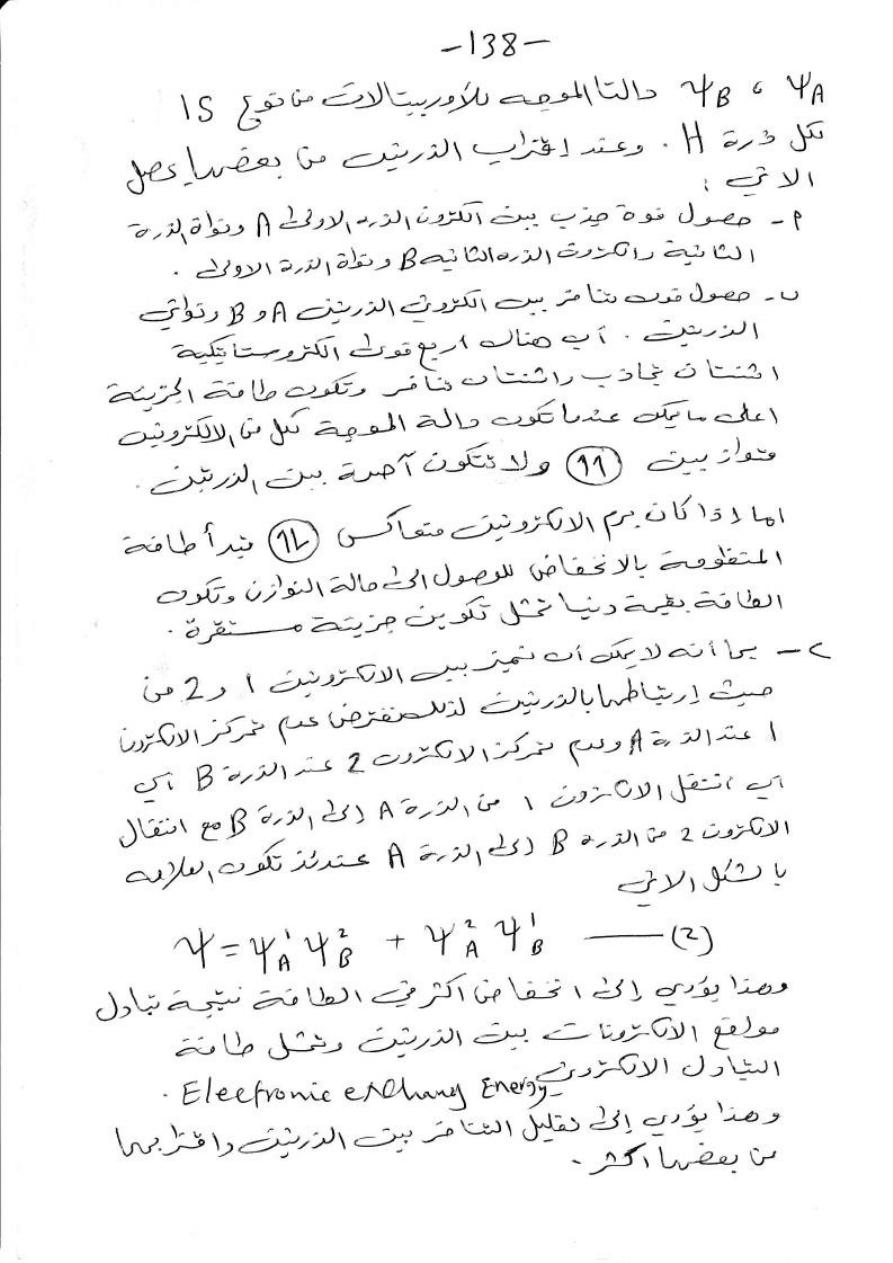 -138-
ΨA ، ΨB دالتا الموجه للأوربيتالات من نوع 1S
لكل ذرة H . وعند اقتراب الذرتين من بعضهما يحصل
الاتي :
أ- حصول قوة جذب بين الكترون الذرة الاولى A ونواة الذرة
الثانية والكترون الذرة الثانيه B ونواة الذرة الاولى .
ب- حصول قوى تنافر بين الكتروني الذرتين A و B ونواتي
الذرتين . أي هناك اربع قوى الكتروستاتيكية
اثنتان تجاذب واثنتان تنافر وتكون طاقة الجزيئة
اعلى ما يمكن عندما تكون دالة الموجة لكل من الالكترونين
متوازيين (11) ولا تتكون آصرة بين الذرتين .
اما اذا كان برم الالكترونين متعاكس (1L) تبدأ طاقة
المنظومة بالانخفاض للوصول الى حالة التوازن وتكون
الطاقة بقيمة دنيا تمثل تكوين جزيئة مستقرة .
ح- بما أنه لا يمكن أن نميز بين الالكترونين 1 و 2 من
حيث إرتباطهما بالذرتين لذلك نفترض عدم تمركز الالكترون
1 عند الذرة A وعدم تمركز الالكترون 2 عند الذرة B أي
أي انتقل الالكترون 1 من الذرة A إلى الذرة B مع انتقال
الالكترون 2 من الذرة B إلى الذرة A عندئذ تكون العلاقه
بالشكل الاتي
Ψ = Ψ¹A Ψ²B + Ψ²A Ψ¹B —— (2)
وهذا يؤدي إلى انخفاض اكثر في الطاقة نتيجة تبادل
مواقع الالكترونات بين الذرتين وتمثل طاقة
التبادل الالكتروني
Electronic exchang Energy .
وهذا يؤدي إلى تقليل التنافر بين الذرتين واقترابهما
من بعضهما اكثر .